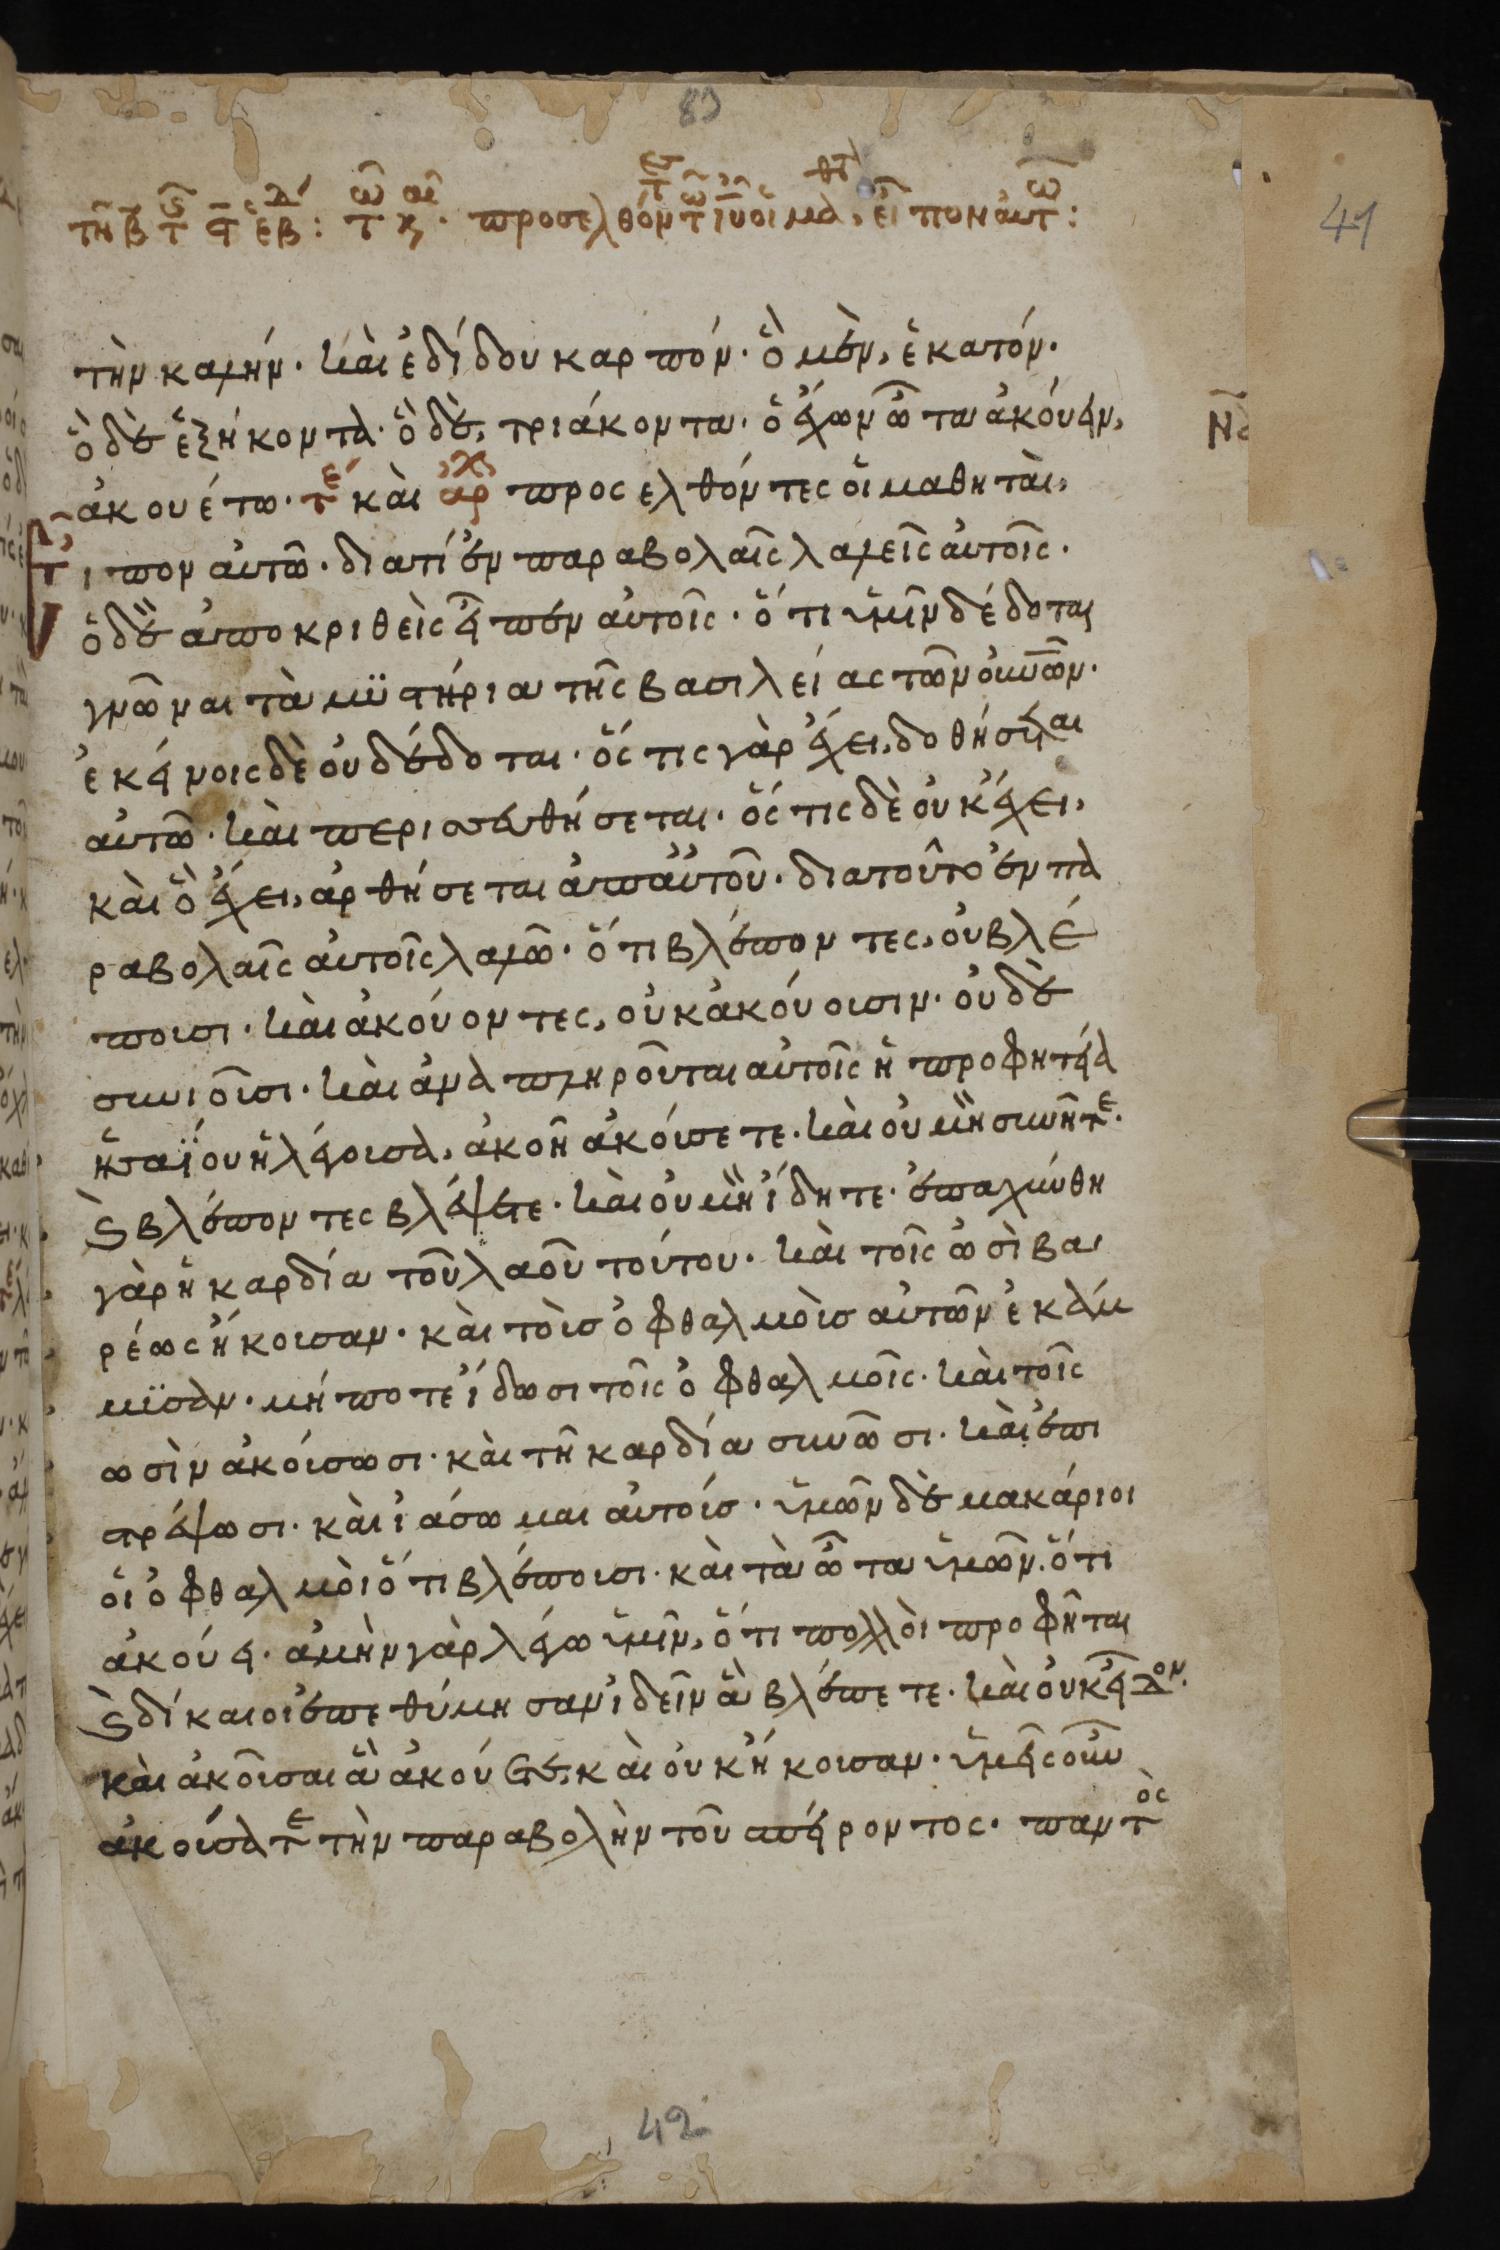 89
41
τὴν καλήν· καὶ ἐδίδου καρπόν· ὃ μὲν, ἑκατόν·
ὃ δὲ ἑξήκοντα· ὃ δὲ, τριάκοντα· ὁ ἔχων ὦτα ἀκούειν,
ἀκουέτω· τε καὶ ἀρχ προσελθόντες οἱ μαθηταὶ,
εἶπον αὐτῶ· διατί ἐν παραβολαῖς λαλεῖς αὐτοῖς·
ὁ δὲ ἀποκριθεὶς εἶπεν αὐτοῖς· ὅτι ὑμῖν δέδοται
γνῶναι τὰ μυστήρια τῆς βασιλείας τῶν οὐνῶν·
ἐκείνοις δὲ οὐ δέδοται· ὅς τις γὰρ ἔχει, δοθήσεται
αὐτῶ· καὶ περισσευθήσεται· ὅς τις δὲ οὐκ ἔχει,
καὶ ὃ ἔχει, ἀρθήσεται ἀπ' αὐτοῦ· διατοῦτο ἐν πα
ραβολαῖς αὐτοῖς λαλῶ· ὅτι βλέποντες, οὐ βλέ
πουσι· καὶ ἀκούοντες, οὐκ ἀκούουσιν· οὐδὲ
συνιοῦσι· καὶ ἀναπληροῦται αὐτοῖς ἡ προφητεία
ἡσαΐου ἡ λέγουσα, ἀκοῆ ἀκούσετε· καὶ οὐ μὴ συνῆτε·
ϗ βλέποντες βλέψετε· καὶ οὐ μὴ ἴδητε· ἐπαχύνθη
γὰρ ἡ καρδία τοῦ λαοῦ τούτου· καὶ τοῖς ὠσὶ βα
ρέως ἤκουσαν· καὶ τοὺς ὀφθαλμοὺς αὐτῶν ἐκάμ
μϋσαν· μήποτε ἴδωσι τοῖς ὀφθαλμοῖς· καὶ τοῖς
ὠσὶν ἀκούσωσι· καὶ τῆ καρδία συνῶσι· καὶ ἐπι
στρέψωσι· καὶ ἰάσωμαι αὐτούς· ὑμῶν δὲ μακάριοι
οἱ ὀφθαλμοὶ ὅτι βλέπουσι· καὶ τὰ ὦτα ὑμῶν· ὅτι
ἀκούει· ἀμὴν γὰρ λέγω ὑμῖν, ὅτι πολλοὶ προφῆται
ϗ δίκαιοι ἐπεθύμησαν ἰδεῖν ἃ βλέπετε· καὶ οὐκ εἶδον·
καὶ ἀκοῦσαι ἃ ἀκούετε, καὶ οὐκ ἤκουσαν· ὑμεῖς οὖν
ἀκούσατε τὴν παραβολὴν τοῦ σπείροντος· παντὸς
42